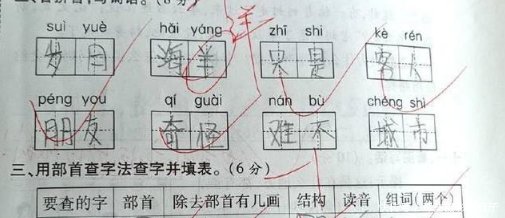 suì yuè hǎi yáng zhī shi kè rén
岁 日 海 羊 是 客 人
péng you qí guài nán bù chéng shì
朋 友 奇 怪 难 不 城 市
三、用部首查字法查字并填表。(6分)
要查的字 部首 除去部首有几画 结构 读音 组词(两个)